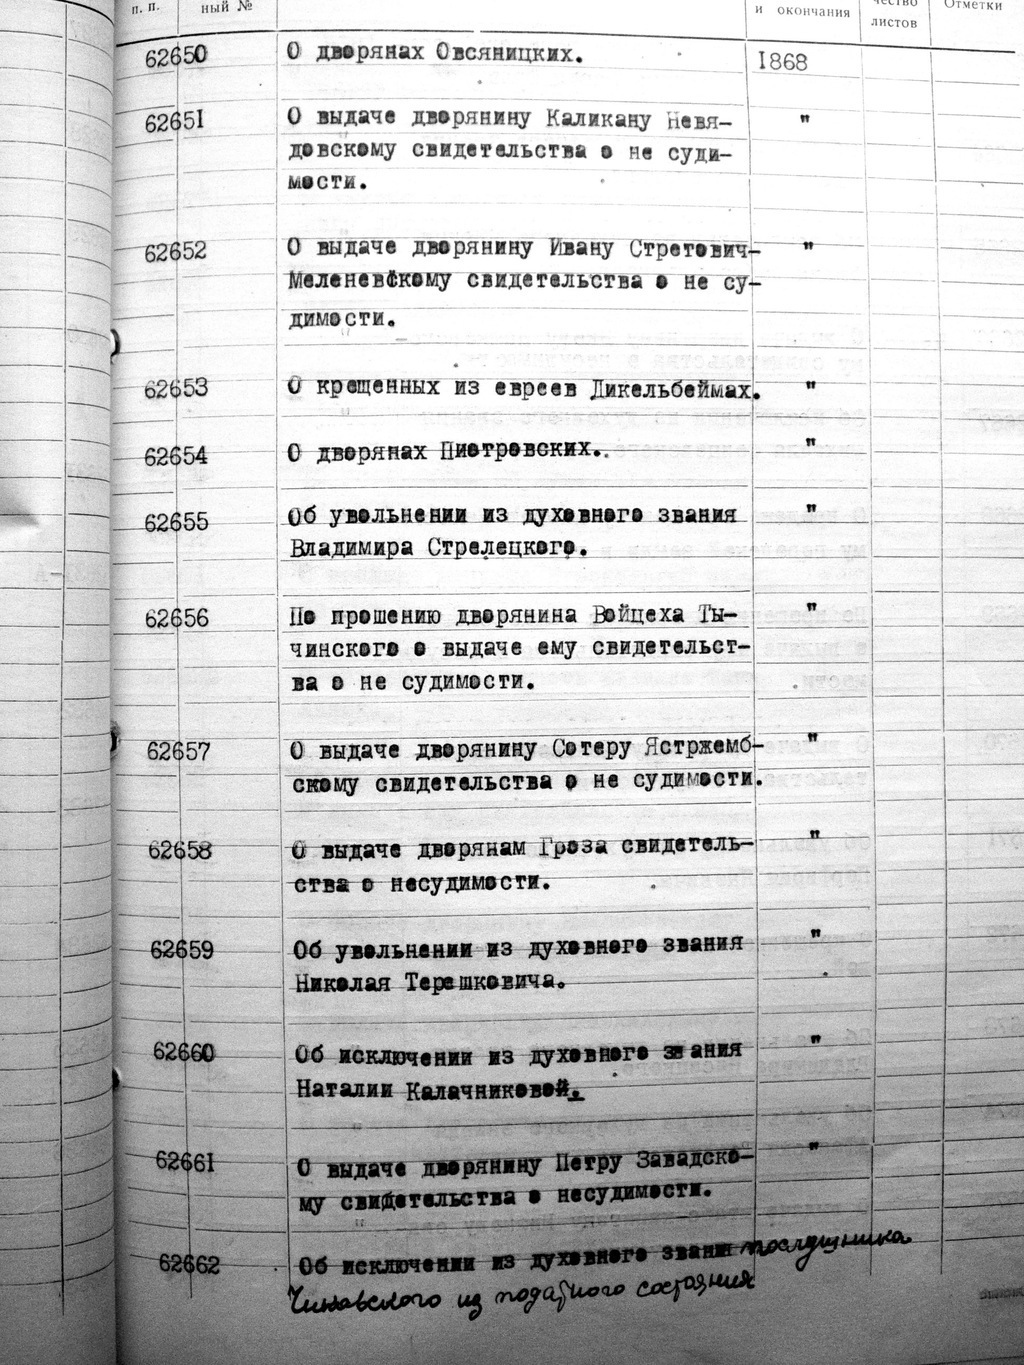 п. п. ный № и окончания чество листов Отметки
62650 О дворянах Овсяницких. 1868
62651 О выдаче дворянину Каликану Невя- "
довскому свидетельства о не суди-
мости.
62652 О выдаче дворянину Ивану Стретович- "
Меленевскому свидетельства о не су-
димости.
62653 О крещенных из евреев Дикельбеймах. "
62654 О дворянах Пиетровских. "
62655 Об увольнении из духовного звания "
Владимира Стрелецкого.
62656 По прошению дворянина Войцеха Ты- "
чинского о выдаче ему свидетельст-
ва о не судимости.
62657 О выдаче дворянину Сотеру Ястржемб- "
скому свидетельства о не судимости.
62658 О выдаче дворянам Гроза свидетель- "
ства о несудимости.
62659 Об увольнении из духовного звания "
Николая Терешковича.
62660 Об исключении из духовного звания "
Наталии Калачниковой.
62661 О выдаче дворянину Петру Завадско- "
му свидетельства о несудимости.
62662 Об исключении из духовного звания послушника
из податного состояния